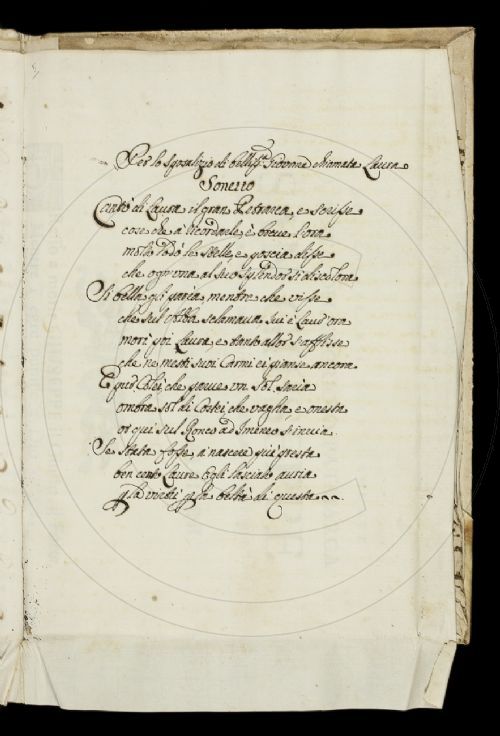 Per lo sposalizio di belliss.ma Giovane chiamata Laura
Sonetto
Cantò di Laura il gran Petrarca, e scrisse
cose che à ricordarle, è breve l'ora
molto lodò le stelle, e poscia disse
che ogn'una al suo splendor si discolora
Si bella gli paria, mentre che visse
che sul Alba sclamava, qui è Laud'ora
morì poi Laura, e tanto allor s'afflisse
che ne mesti suoi Carmi ei pianse ancora
E pur Colei che parve un sol, saria
ombra sol di Costei, che vagha, e onesta
or qui sul Ronco ad Imeneo s'invia
Se stata fosse à nascere più presta
ben cento Laure Egli lasciate avria
la beltà di questa